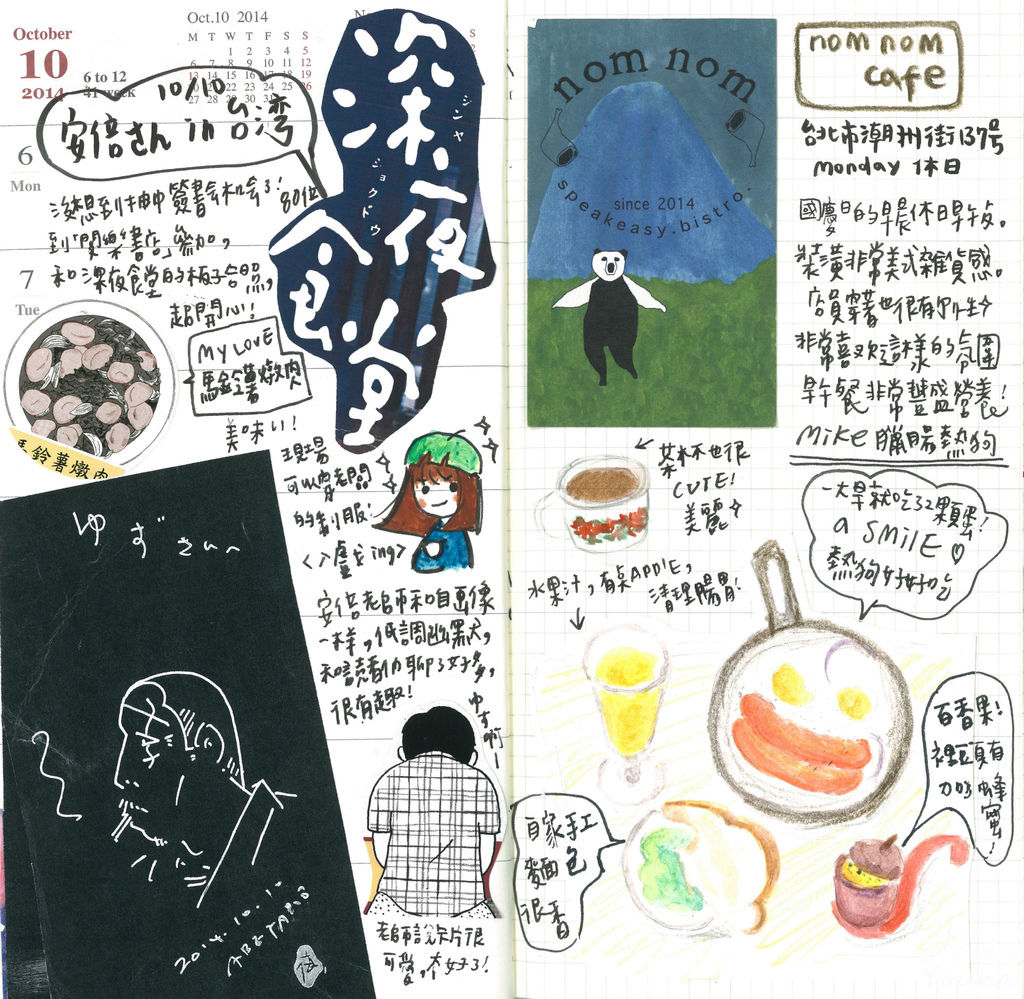 October
10
2014
6 to 12
41 week
Oct.10 2014
M T W T F S S
1 2 3 4 5
6 7 8 9 10 11 12
13 14 15 16 17 18 19
20 21 22 23 24 25 26
27 28 29 30 31
6
Mon
7
Tue
10/10
安倍さん in 台湾
深夜食堂
シンヤ
ショクドウ
沒想到抽中簽書會机会了!
80位
到「閱樂書店」參加,
和深夜食堂的板子合照,
超開心!
My LOVE
馬鈴薯燉肉
美味い!
馬鈴薯燉肉
現場
可以穿老闆
的制服!
ゆずさんへ
2014.10.10
ABE TARO
安倍老師和自畫像
一樣,低調幽默,
和讀者們聊了好多,
很有趣!
老師說卡片很
可愛,太好了!
nom nom
since 2014
speakeasy.bistro.
nom nom
cafe
台北市潮州街137号
monday 休日
國慶日的早晨休日早午。
裝潢非常美式雜貨感。
店員穿著也很有個性
非常喜欢這樣的氛圍
早午餐非常豐盛營養!
Mike臘腸熱狗
菜杯也很
CUTE!
美麗
一大早就吃32顆蛋!
a SMILE
熱狗好好吃
水果汁,有桌APPlE,
清理腸胃!
百香果!
裡頭有
加蜂
蜜!
自家手工
麵包
很香